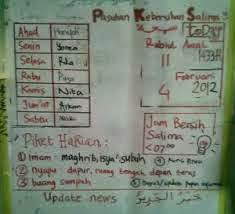 Pasukan Kebersihan Salima
Ahad Hanifah
Senin
Selasa Rila
Rabu Puja
Kamis Nita
Jum'at
Sabtu
toDay
Rabiul Awal
11 1433H
Februari
4 2012
Jam Bersih
Salima
<07.00
Piket Harian:
① Imam: maghrib, isya', subuh
② nyapu dapur, ruang tengah, depan, teras
③ buang sampah
④
⑤
Update news